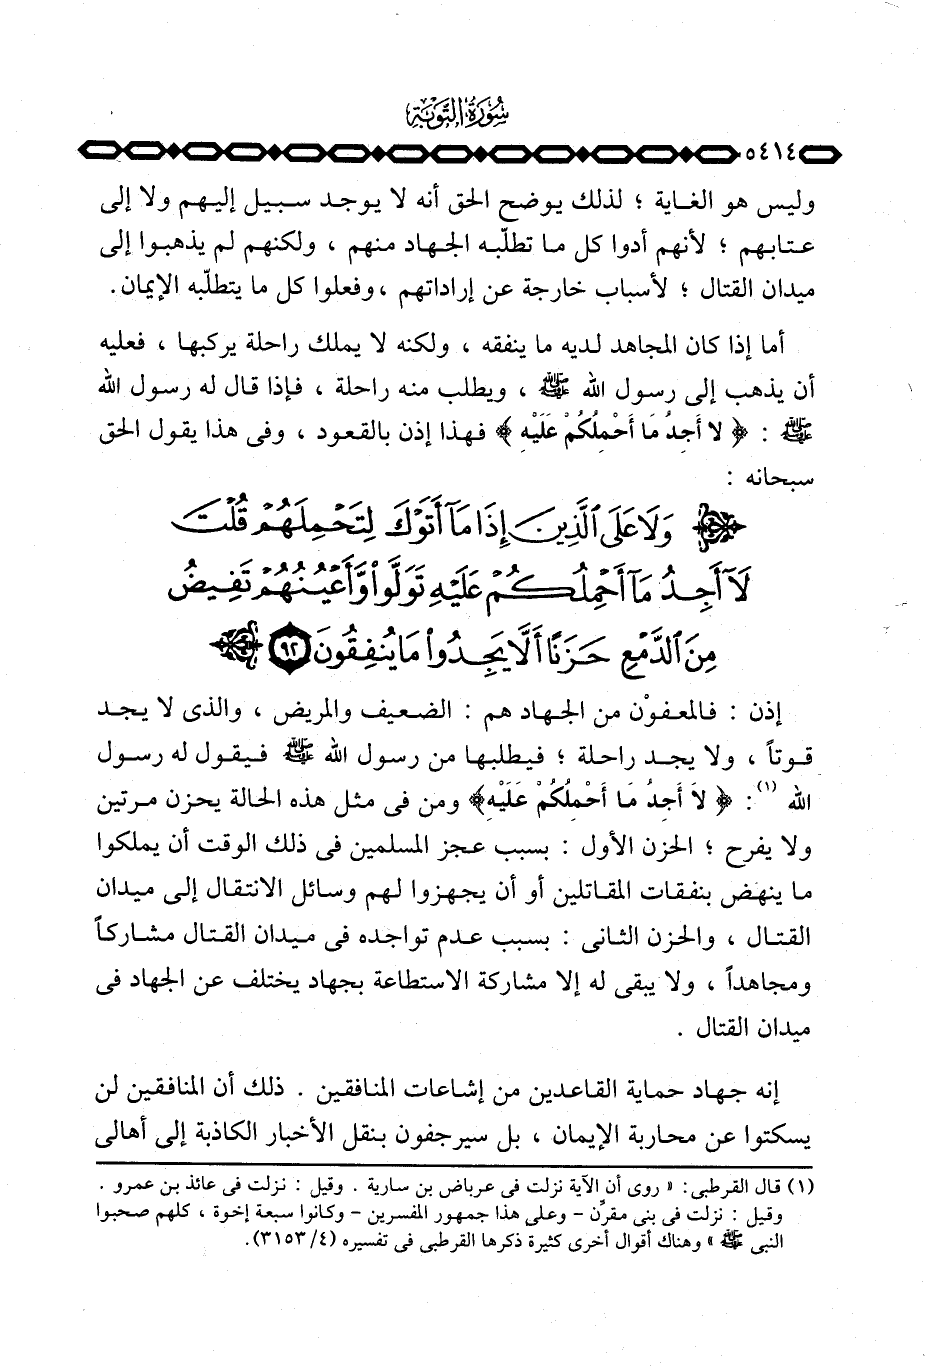 سُورَةُ التَّوْبَةِ
٥٤١٤
وليس هو الغاية ؛ لذلك يوضح الحق أنه لا يوجد سبيل إليهم ولا إلى
عتابهم ؛ لأنهم أدوا كل ما تطلَّبه الجهاد منهم ، ولكنهم لم يذهبوا إلى
ميدان القتال ؛ لأسباب خارجة عن إراداتهم ،وفعلوا كل ما يتطلَّبه الإيمان.
أما إذا كان المجاهد لديه ما ينفقه ، ولكنه لا يملك راحلة يركبها ، فعليه
أن يذهب إلى رسول الله ﷺ ، ويطلب منه راحلة ، فإذا قال له رسول الله
ﷺ : ﴿ لا أَجِدُ مَا أَحْمِلُكُمْ عَلَيْهِ ﴾ فهذا إذن بالقعود ، وفى هذا يقول الحق
سبحانه :
وَلَا عَلَى ٱلَّذِينَ إِذَا مَآ أَتَوْكَ لِتَحْمِلَهُمْ قُلْتَ
لَآ أَجِدُ مَآ أَحْمِلُكُمْ عَلَيْهِ تَوَلَّوا۟ وَّأَعْيُنُهُمْ تَفِيضُ
مِنَ ٱلدَّمْعِ حَزَنًا أَلَّا يَجِدُوا۟ مَا يُنفِقُونَ ٩٢
إذن : فالمعفوْن من الجهاد هم : الضعيف والمريض ، والذى لا يجد
قوتاً ، ولا يجد راحلة ؛ فيطلبها من رسول الله ﷺ فيقول له رسول
الله (١): ﴿ لا أَجِدُ مَا أَحْمِلُكُمْ عَلَيْهِ﴾ ومن فى مثل هذه الحالة يحزن مرتين
ولا يفرح ؛ الحزن الأول : بسبب عجز المسلمين فى ذلك الوقت أن يملكوا
ما ينهض بنفقات المقاتلين أو أن يجهزوا لهم وسائل الانتقال إلى ميدان
القتال ، والحزن الثانى : بسبب عدم تواجده فى ميدان القتال مشاركاً
ومجاهداً ، ولا يبقى له إلا مشاركة الاستطاعة بجهاد يختلف عن الجهاد فى
ميدان القتال .
إنه جهاد حماية القاعدين من إشاعات المنافقين . ذلك أن المنافقين لن
يسكتوا عن محاربة الإيمان ، بل سيرجفون بنقل الأخبار الكاذبة إلى أهالى
(١) قال القرطبى: « روى أن الآية نزلت فى عرباض بن سارية . وقيل : نزلت فى عائذ بن عمرو .
وقيل : نزلت فى بنى مقرِّن - وعلى هذا جمهور المفسرين - وكانوا سبعة إخوة ، كلهم صحبوا
النبى ﷺ » وهناك أقوال أخرى كثيرة ذكرها القرطبى فى تفسيره (٤/ ٣١٥٣).